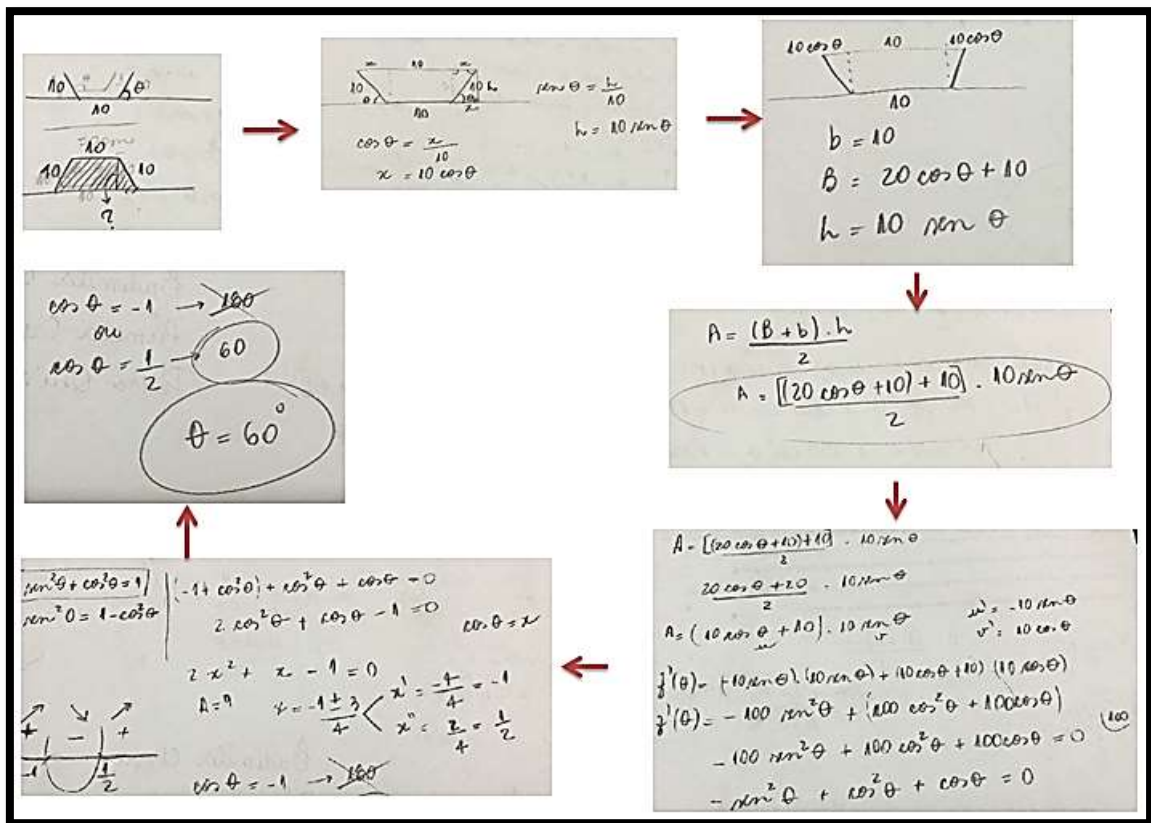 10 10 θ
10
10
10 10
?
x 10 x
10 10 h
θ θ
10 x
sen θ = h/10
h = 10 sen θ
cos θ = x/10
x = 10 cos θ
10 cos θ 10 10 cos θ
10
b = 10
B = 20 cos θ + 10
h = 10 sen θ
A = (B + b) . h / 2
A = [(20 cos θ + 10) + 10] . 10 sen θ / 2
A = [(20 cos θ + 10) + 10] . 10 sen θ / 2
20 cos θ + 20 / 2 . 10 sen θ
A = (10 cos θ + 10) . 10 sen θ
u v
u' = -10 sen θ
v' = 10 cos θ
f'(θ) = (-10 sen θ).(10 sen θ) + (10 cos θ + 10) (10 cos θ)
f'(θ) = - 100 sen²θ + (100 cos²θ + 100 cos θ)
- 100 sen²θ + 100 cos²θ + 100 cos θ = 0 (100
- sen²θ + cos²θ + cos θ = 0
sen²θ + cos²θ = 1
sen²θ = 1 - cos²θ
(-1 + cos²θ) + cos²θ + cos θ = 0
2 cos²θ + cos θ - 1 = 0
cos θ = x
2x² + x - 1 = 0
Δ = 9 x = -1 ± 3 / 4
x' = -4/4 = -1
x'' = 2/4 = 1/2
+ - +
-1 1/2
cos θ = -1 → 180
cos θ = -1 → 180
ou
cos θ = 1/2 → 60
θ = 60°